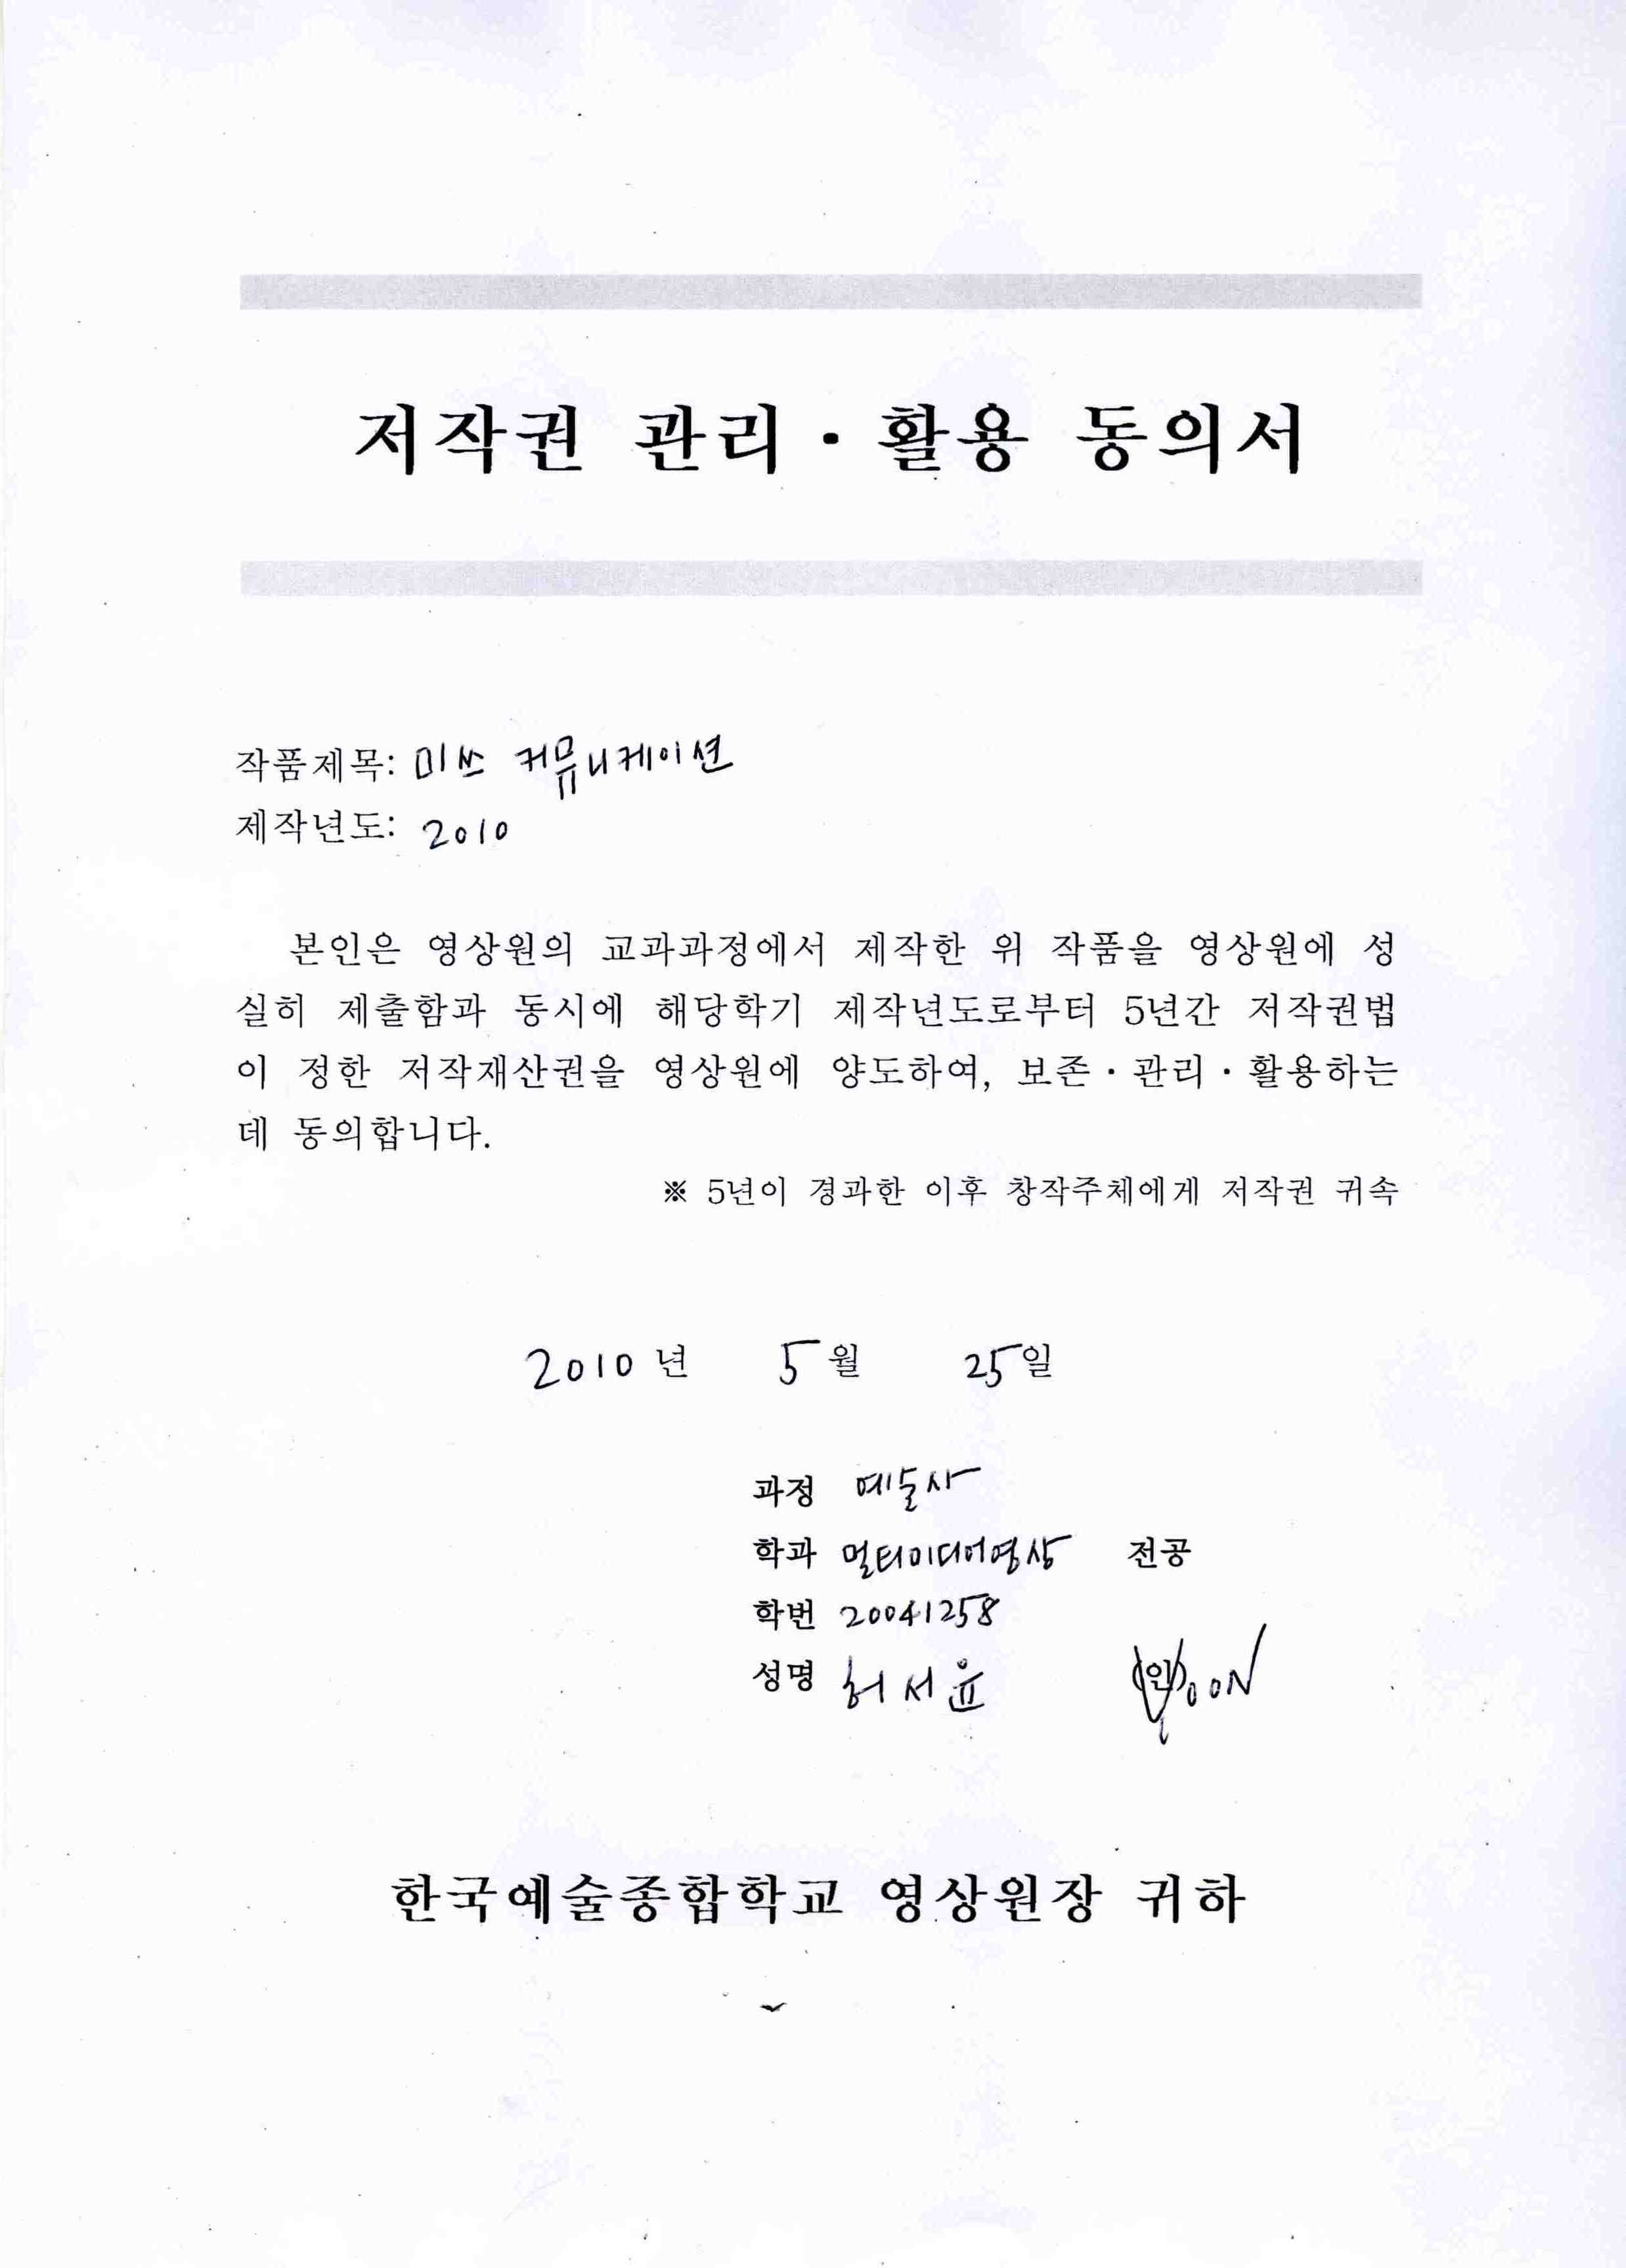 저작권 관리·활용 동의서
작품제목: 미쓰 커뮤니케이션
제작년도: 2010
본인은 영상원의 교과과정에서 제작한 위 작품을 영상원에 성
실히 제출함과 동시에 해당학기 제작년도로부터 5년간 저작권법
이 정한 저작재산권을 영상원에 양도하여, 보존·관리·활용하는
데 동의합니다.
※ 5년이 경과한 이후 창작주체에게 저작권 귀속
2010 년 5 월 25 일
과정 예술사
학과 멀티미디어영상 전공
학번 20041258
성명 허서윤 (인)
한국예술종합학교 영상원장 귀하